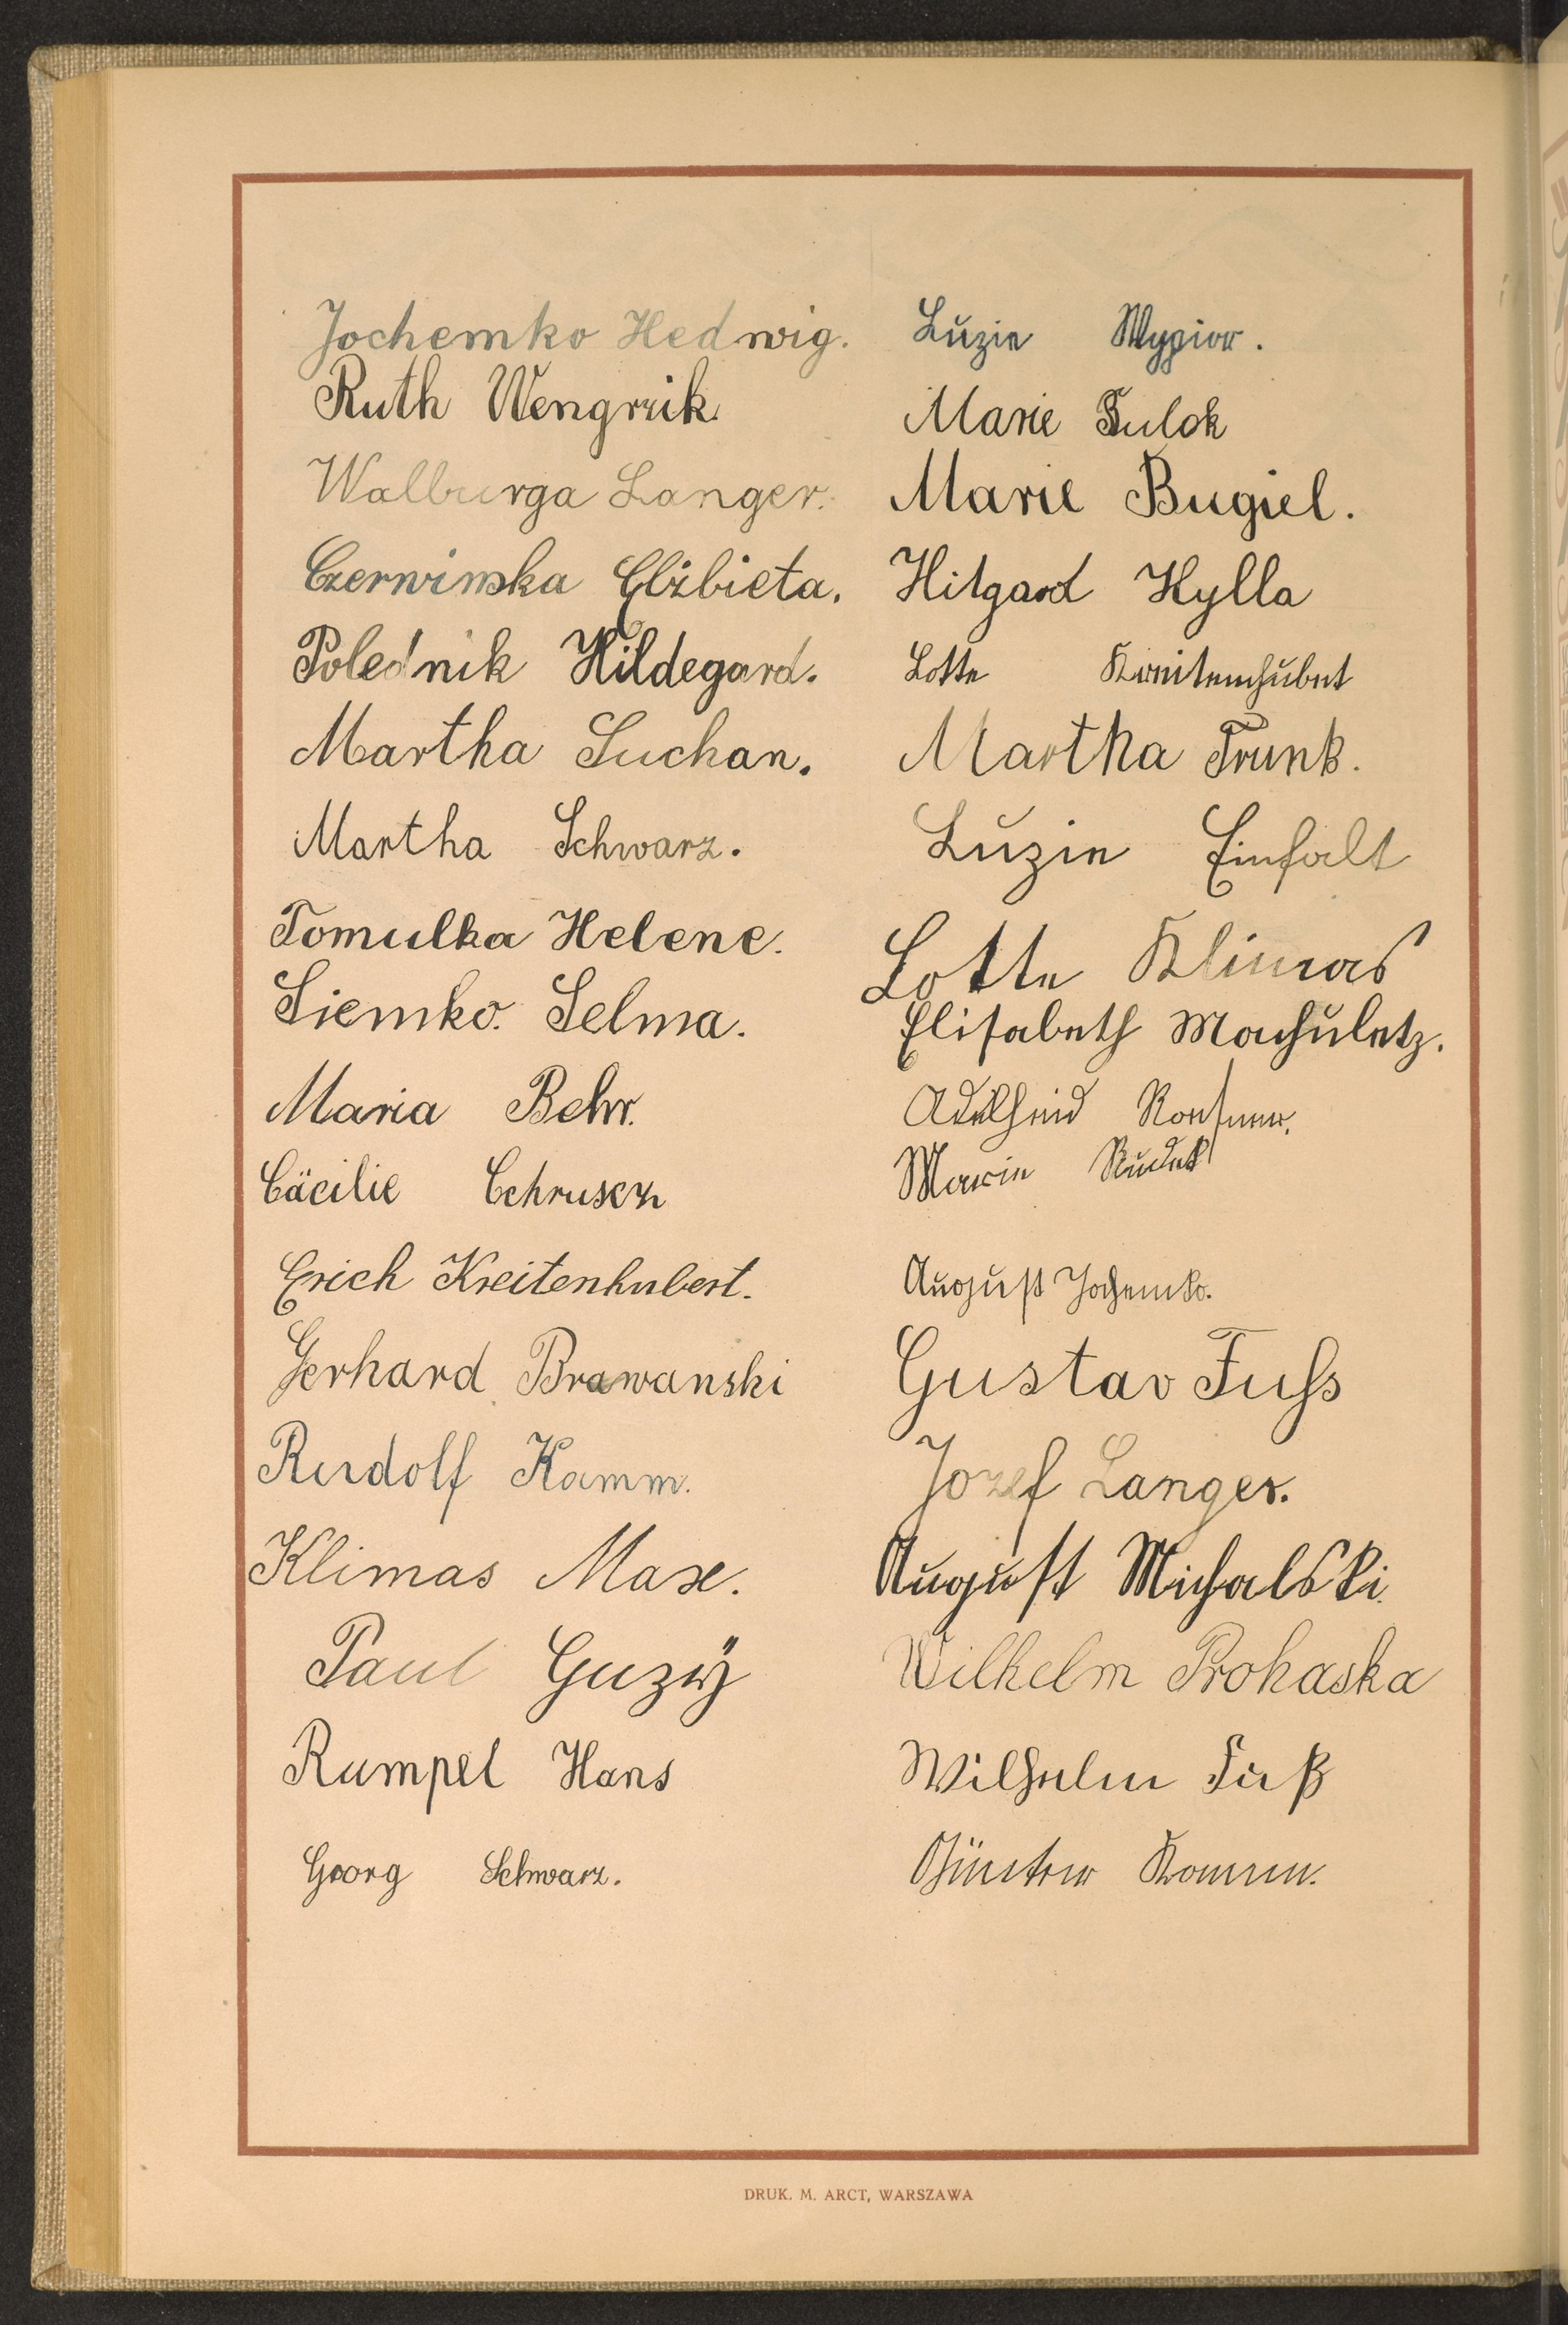 Jochemko Hedwig.
Ruth Wengrzik.
Walburga Langer.
Czerwinska Elżbieta.
Polednik Hildegard.
Martha Suchan.
Martha Schwarz.
Tomulka Helene.
Siemko. Selma.
Maria Behr.
Cäcilie
Erich Kreitenhubert.
Gerhard Brawanski
Rudolf Kamm.
Klimas Max.
Paul Guzij
Rumpel Hans
Georg Schwarz.
Luzie Wypior.
Marie
Marie Bugiel.
Hilgard Kylla
Lotte
Martha Trunk.
Luzie Einfalt
Lotte Klimas
Elisabeth Machuletz.
Adelheid
Marie Rudek
August Jochemko.
Gustav Fuſs
Jozef Langer.
August Michalski.
Wilhelm Prohaska
Wilhelm Fuß
Günter Kamm.
DRUK. M. ARCT, WARSZAWA